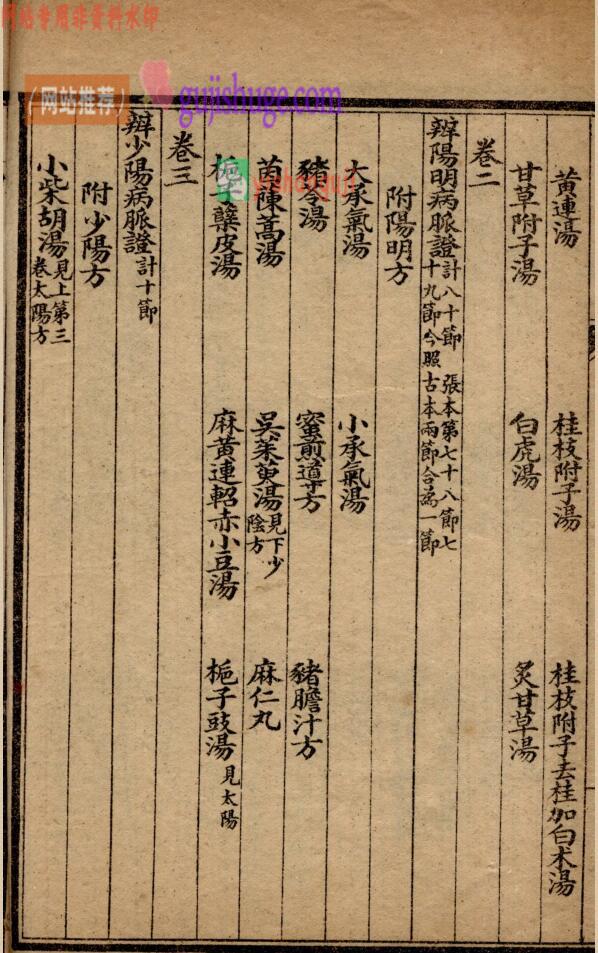 网站专用非资料水印
(网站推荐)
gujishuge.com
黃連湯 桂枝附子湯 桂枝附子去桂加白朮湯
甘草附子湯 白虎湯 炙甘草湯
卷二
辨陽明病脈證計八十節 張本第七十八節七十九節今照古本兩節合為一節
附陽明方
大承氣湯 小承氣湯
豬苓湯 蜜煎導方 豬膽汁方
茵陳蒿湯 吳茱萸湯見下少陰方 麻仁丸
梔子蘗皮湯 麻黃連軺赤小豆湯 梔子豉湯見太陽
卷三
辨少陽病脈證計十節
附少陽方
小柴胡湯見上第三卷太陽方